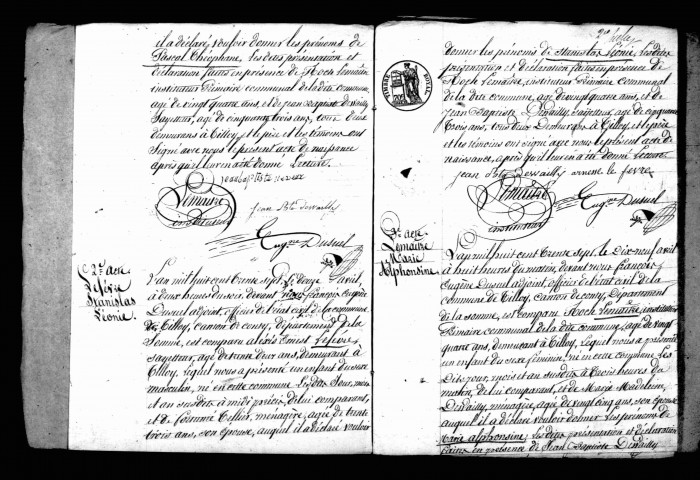 il a déclaré vouloir donner les prénoms de
Pascal Théophane, lesdites présentation et
déclaration faites en présence de Roch Lemaître
instituteur Primaire communal de la dite commune
agé de vingt quatre ans, et de Jean Baptiste
agé de cinquante trois ans, tous deux
demeurans à Tilloy, et le père et les témoins ont
Signé avec nous le présent acte de naissance
après qu'il leur en a été donné Lecture.
Lemaitre
instituteur
Jean Bte
Eugne Dusuel
2e acte
Lefevre
Stanislas
Léonie.
L'an mil huit cent trente sept, le Douze avril
à deux heures du soir, devant nous françois Eugène
Dusuel adjoint, officier de l'état civil de la commune
de Tilloy, canton de conty, département de la
Somme, est comparu Alexis Ernest Lefevre
agé de trente deux ans, demeurans à
Tilloy, lequel nous a présenté un enfant du sexe
masculin, né en cette commune
an susdits à midi précis, de lui comparant,
et de Tellier, ménagère, agée de trente
trois ans, son épouse, auquel il a déclaré vouloir
donner les prénoms de Stanislas Léonie, Lesdites
présentation et déclaration faites en présence de
Roch Lemaître, instituteur Primaire communal
de la dite commune, agé de vingt quatre ans, et de
Jean Baptiste agé de cinquante
trois ans, tous deux Demeurans à Tilloy, et le père
et les témoins ont signé avec nous le présent acte de
naissance, après qu'il leur en a été donné Lecture
TIMBRE ROYAL
Jean Bte le fevre
Lemaitre
instituteur
Eugne Dusuel
3e acte
Lemaire
Marie
Alphonsine.
L'an mil huit cent trente sept, le Dix neuf avril
à huit heures du matin, devant nous françois
Eugène Dusuel adjoint, officier de l'état civil de la
commune de Tilloy, canton de conty, Département
de la somme, est comparu Roch Lemaitre instituteur
Primaire communal de la dite commune, agé de vingt
quatre ans, demeurant à Tilloy, lequel nous a présenté
un enfant du sexe féminin, né en cette commune Les
Dits jour, mois et an susdits à trois heures du
matin, de lui comparant, et de Marie Madeleine
ménagère, agée de vingt cinq ans, son épouse
auquel il a déclaré vouloir donner Les prénoms de
Marie alphonsine; Les dites présentation et déclaration
faites en présence de Jean Baptiste